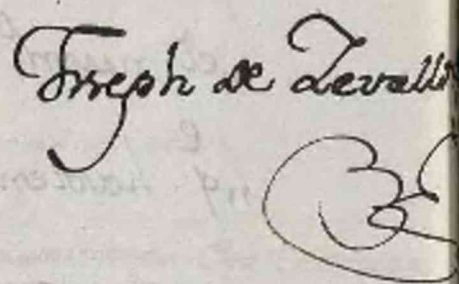 Joseph de Zevallo